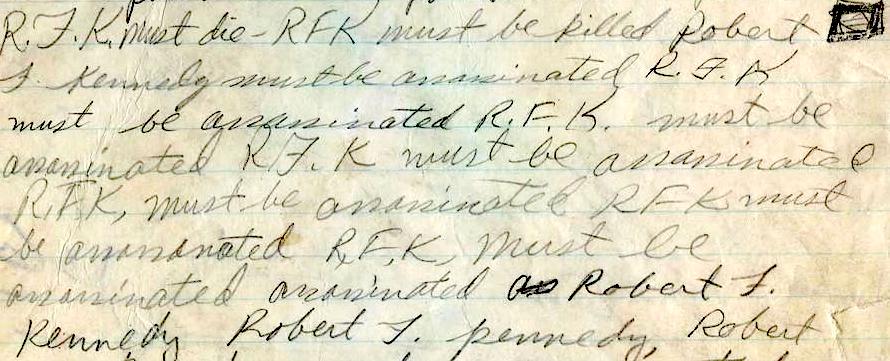 R.F.K. must die - RFK must be killed Robert
F. Kennedy must be assassinated R.F.K
must be assassinated R.F.K. must be
assassinated R.F.K must be assassinated
R.F.K, must be assassinated RFK must
be assassinated R,F,K, Must be
assassinated assassinated Robert F.
Kennedy Robert F. pennedy, Robert